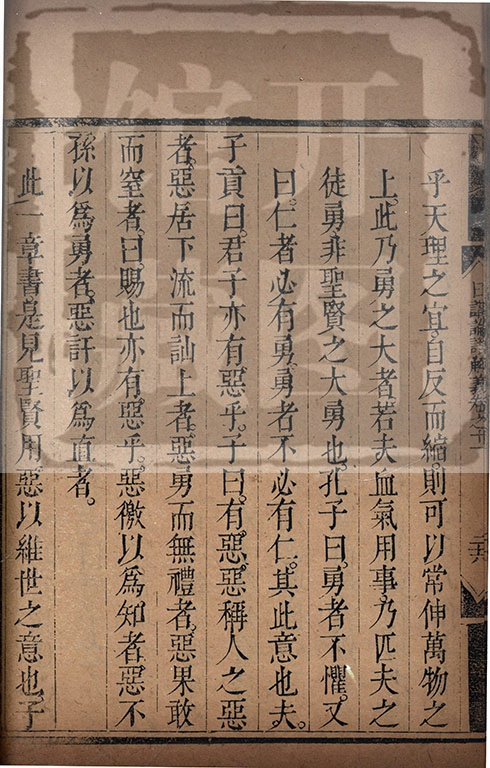 乎天理之宜。自反而縮。則可以常伸萬物之
上。此乃勇之大者。若夫血氣用事。乃匹夫之
徒勇。非聖賢之大勇也。孔子曰。勇者不懼。又
曰。仁者必有勇。勇者不必有仁。其此意也夫。
子貢曰。君子亦有惡乎。子曰。有惡。惡稱人之惡
者。惡居下流而訕上者。惡勇而無禮者。惡果敢
而窒者。曰。賜也亦有惡乎。惡徼以為知者。惡不
孫以為勇者。惡訐以為直者。
此一章書。是見聖賢用惡以維世之意也。子